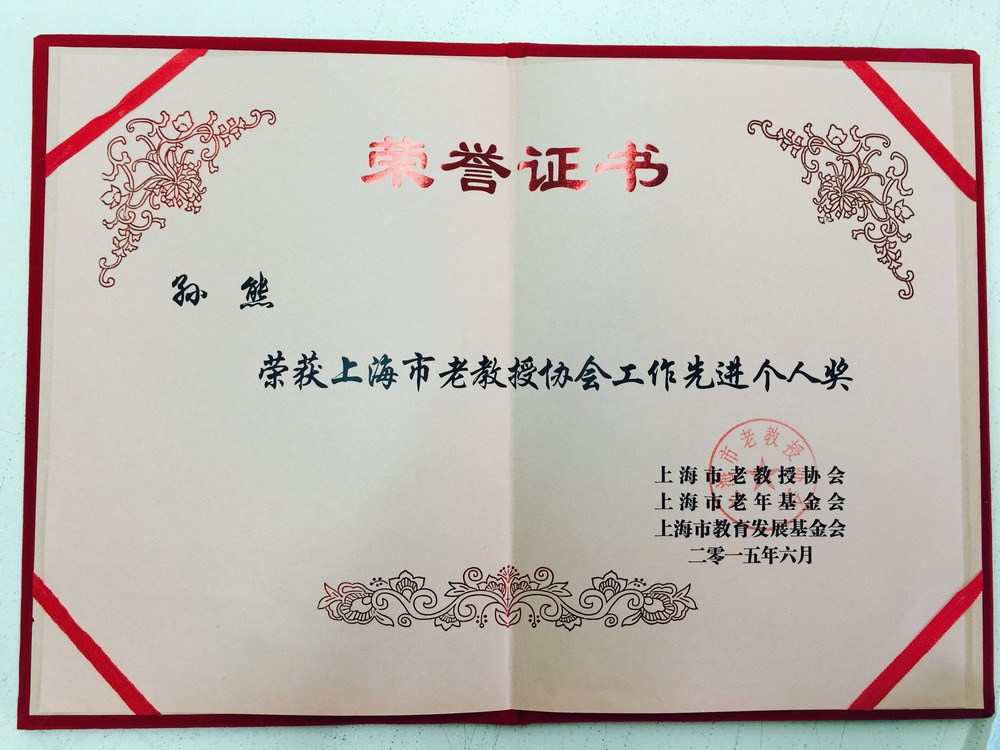 荣誉证书
孙 熊
荣获上海市老教授协会工作先进个人奖
上海市老教授协会
上海市老年基金会
上海市教育发展基金会
二零一五年六月